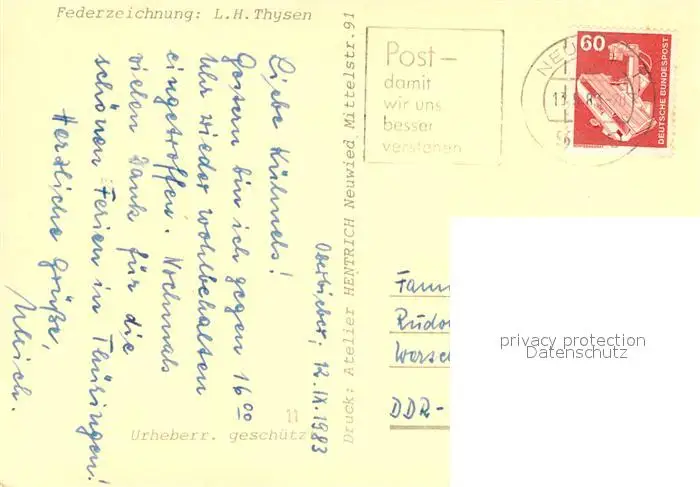 Federzeichnung: L.H.Thysen
Oberbieber, 12.IX.1983
Liebe Kühnels!
Gestern bin ich gegen 16⁰⁰
Uhr wieder wohlbehalten
eingetroffen. Nochmals
vielen Dank für die
schönen Ferien in Thüringen!
Herzliche Grüße,
Ulrich.
11
Urheberr. geschütz
Druck: Atelier HENTRICH Neuwied Mittelstr.91
Post-
damit
wir uns
besser
verstehen
NEU
13
60
DEUTSCHE BUNDESPOST
Fam
Rudo
Wersc
DDR-
privacy protection
Datenschutz